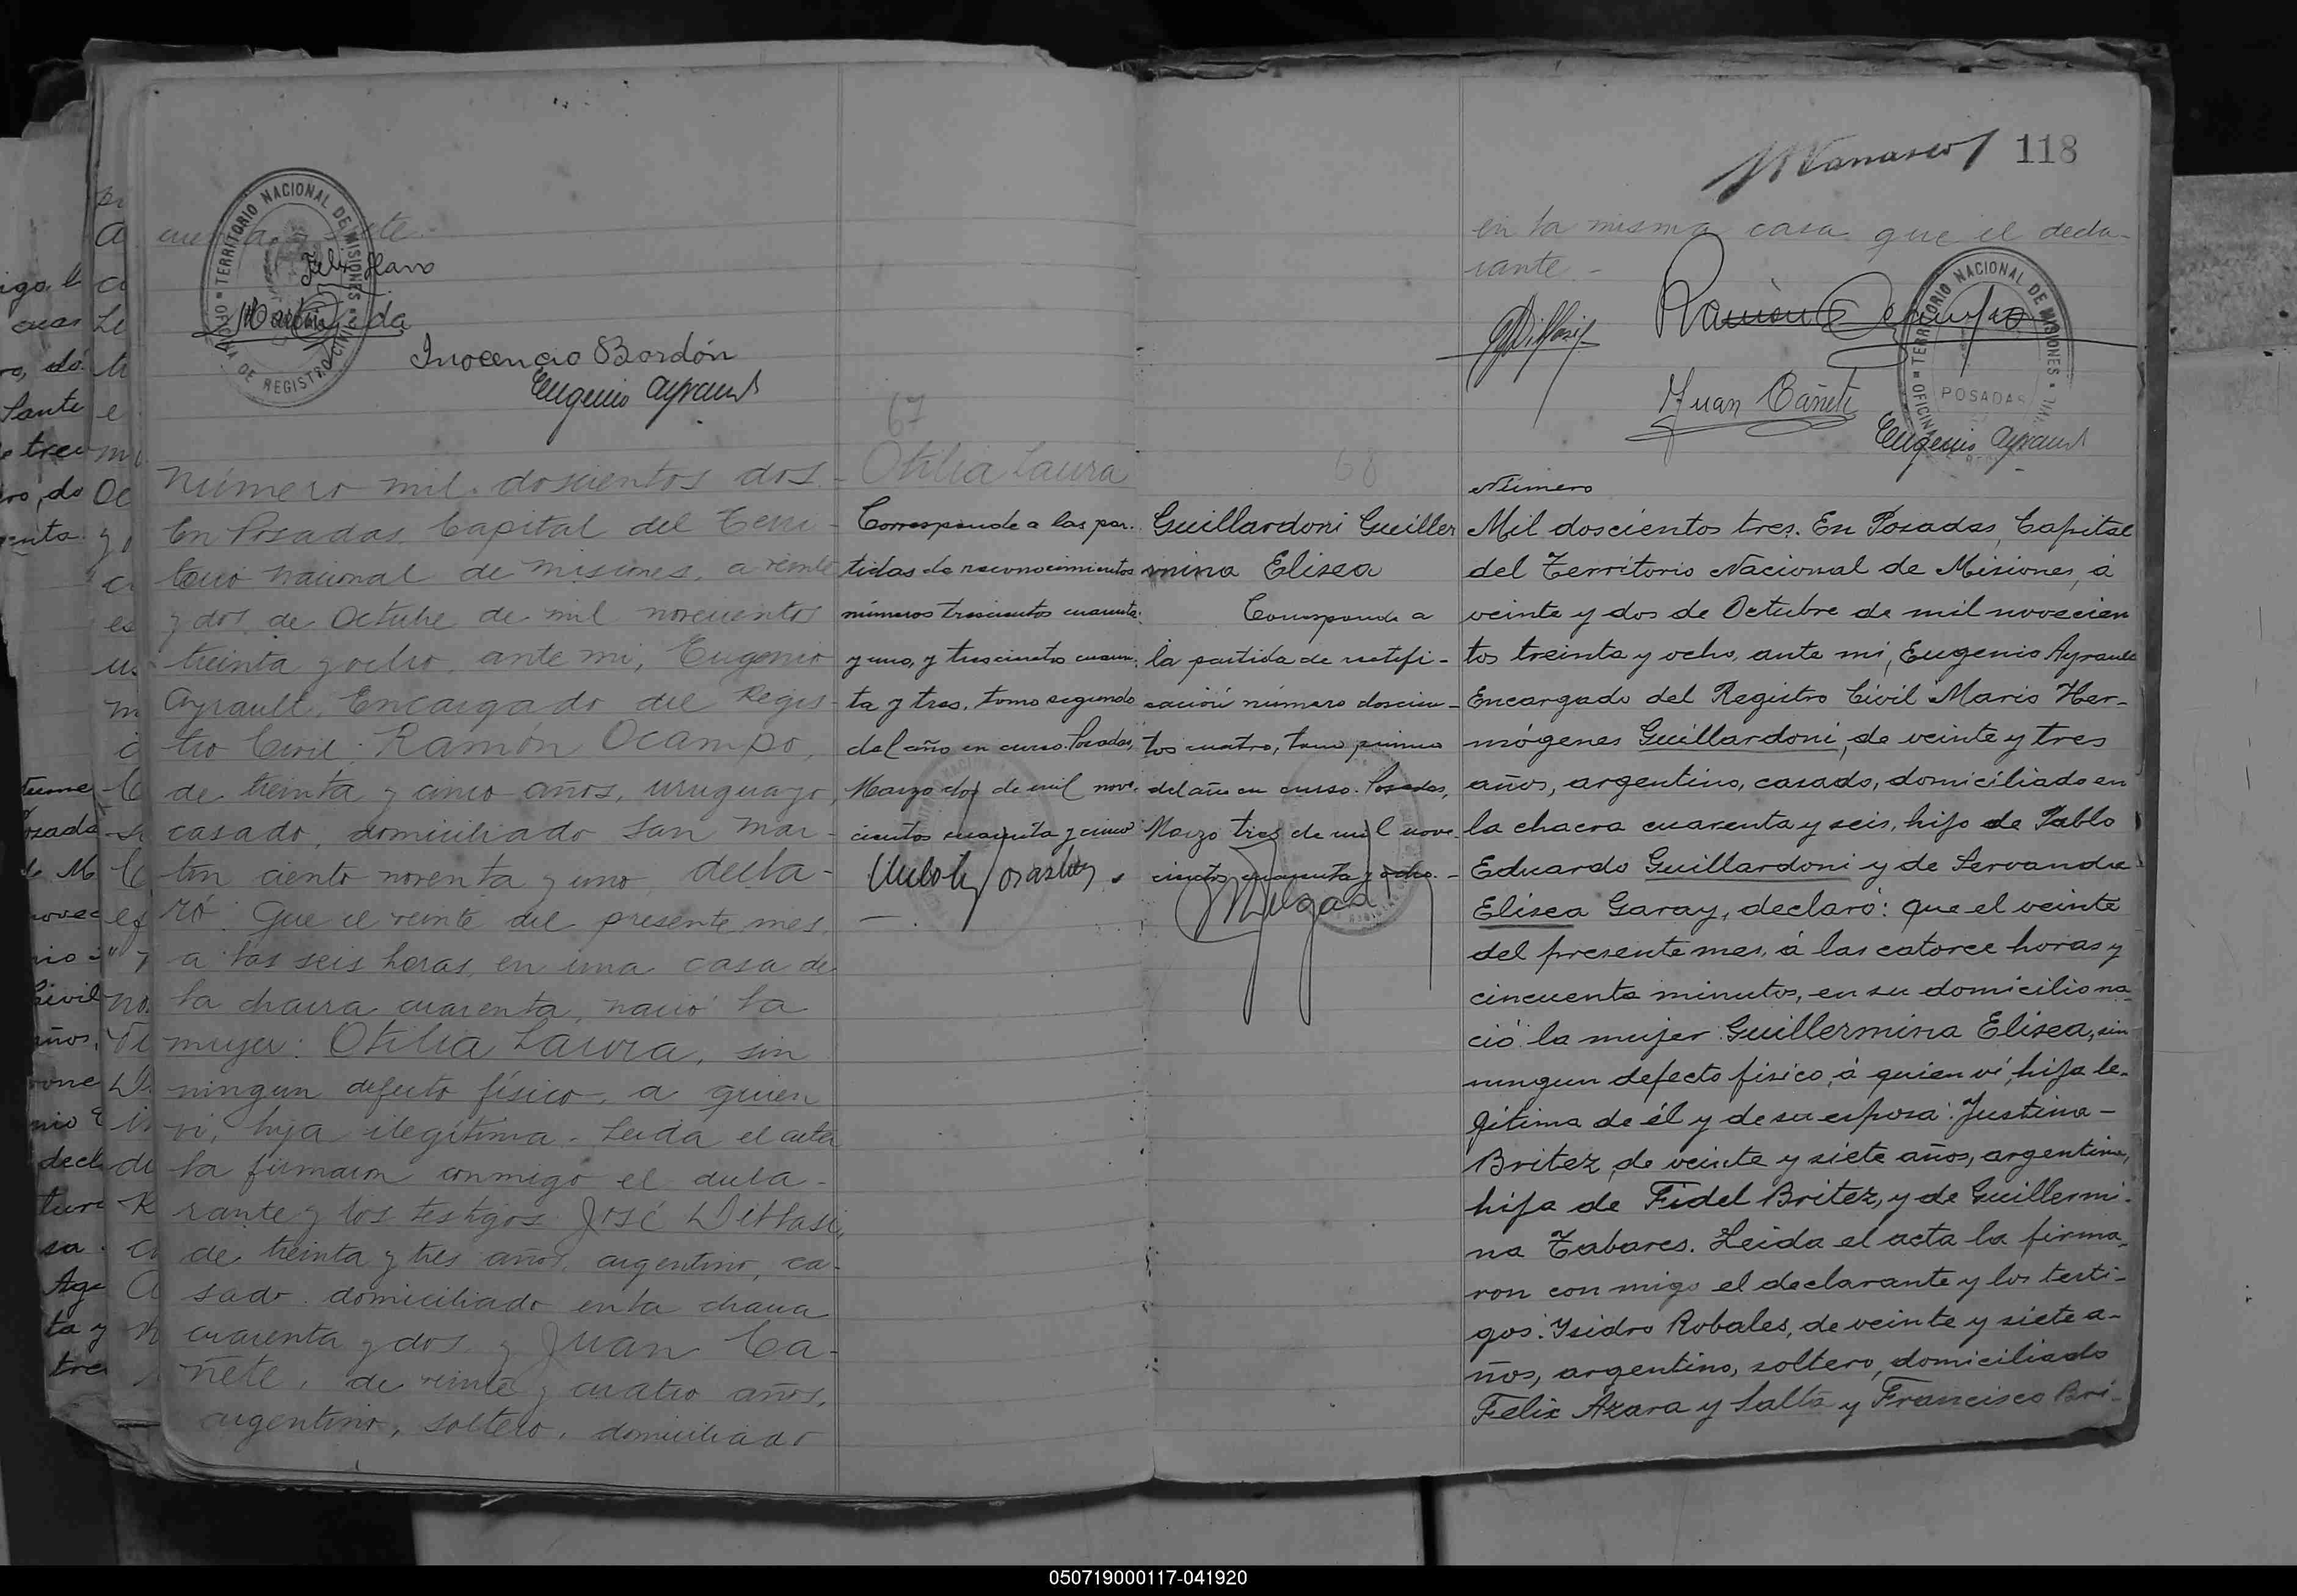 TERRITORIO NACIONAL DE MISIONES
OFICINA DE REGISTRO CIVIL
Inocencio Bordón
Eugenio Ayrault
67
Otilia Laura
Corresponde a las par-
tidas de reconocimientos
números trescientos cuarenta
y uno, y trescientos cuaren-
ta y tres, tomo segundo
del año en curso. Posadas,
Marzo dos de mil nove-
cientos cuarenta y cinco
número mil doscientos dos.-
En Posadas, Capital del Terri-
torio Nacional de Misiones, a veinte
y dos de Octubre de mil novecientos
treinta y ocho, ante mi, Eugenio
Ayrault, Encargado del Regis-
tro Civil: Ramón Ocampo,
de treinta y cinco años, uruguayo,
casado, domiciliado San Mar-
tín ciento noventa y uno, decla-
ró: Que el veinte del presente mes,
a las seis horas, en una casa de
la chacra cuarenta, nació la
mujer: Otilia Laura, sin
ningun defecto físico, a quien
vi, hija ilegítima. Leida el acta
la firmaron conmigo el decla-
rante y los testigos José Dittasi,
de treinta y tres años, argentino, ca-
sado domiciliado en la chacra
cuarenta y dos y Juan Ca-
ñete, de veinte y cuatro años,
argentino, soltero, domiciliado
118
en la misma casa que el decla-
rante -
Ramón Ocampo
Juan Cañete
TERRITORIO NACIONAL DE MISIONES
OFICINA
CIVIL
POSADAS
Eugenio Ayrault
68
Guillardoni Guiller
mina Elisea
Corresponde a
la partida de rectifi-
cación número doscien-
tos cuatro, tomo primero
del año en curso. Posadas,
Marzo tres de mil nove-
cientos cuarenta y ocho.-
Número
Mil doscientos tres. En Posadas, Capital
del Territorio Nacional de Misiones, á
veinte y dos de Octubre de mil novecien
tos treinta y ocho, ante mi, Eugenio Ayrault
Encargado del Registro Civil Mario Her-
mógenes Guillardoni, de veinte y tres
años, argentino, casado, domiciliado en
la chacra cuarenta y seis, hijo de Pablo
Eduardo Guillardoni y de Servanda
Elisea Garay, declaró: que el veinte
del presente mes, á las catorce horas y
cincuenta minutos, en su domicilio na-
ció la mujer: Guillermina Elisea, sin
ningun defecto fisico, á quien ví, hija le-
gítima de él y de su esposa: Justina-
Britez, de veinte y siete años, argentina,
hija de Fidel Britez, y de Guillermi-
na Tabares. Leida el acta la firma-
ron con migo el declarante y los testi-
gos: Isidro Robales, de veinte y siete a-
ños, argentino, soltero, domiciliado
Felix Azara y Salta y Francisco Bri-
050719000117-041920